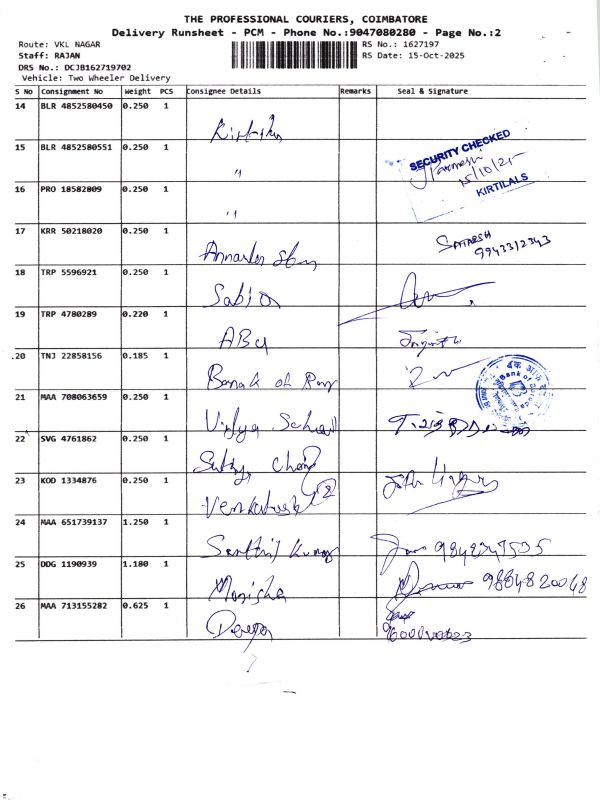 THE PROFESSIONAL COURIERS, COIMBATORE
Delivery Runsheet - PCM - Phone No.:9047080280 - Page No.:2
Route: VKL NAGAR
RS No.: 1627197
Staff: RAJAN
RS Date: 15-Oct-2025
DRS No.: DCJB162719702
Vehicle: Two Wheeler Delivery
S No Consignment No Weight PCS Consignee Details Remarks Seal & Signature
14 BLR 4852580450 0.250 1
15 BLR 4852580551 0.250 1 "
SECURITY CHECKED
15/10/25
KIRTILALS
16 PRO 18582809 0.250 1 "
17 KRR 50218020 0.250 1
SATHESH
9943312343
18 TRP 5596921 0.250 1
19 TRP 4780289 0.220 1 ABU
20 TNJ 22858156 0.185 1 Bank of
Bank of Baroda
21 MAA 708063659 0.250 1 Vidya
22 SVG 4761862 0.250 1
23 KOD 1334876 0.250 1 Venkatesh
24 MAA 651739137 1.250 1 Senthil Kumar
25 DDG 1190939 1.180 1 Monisha 9884820048
26 MAA 713155282 0.625 1